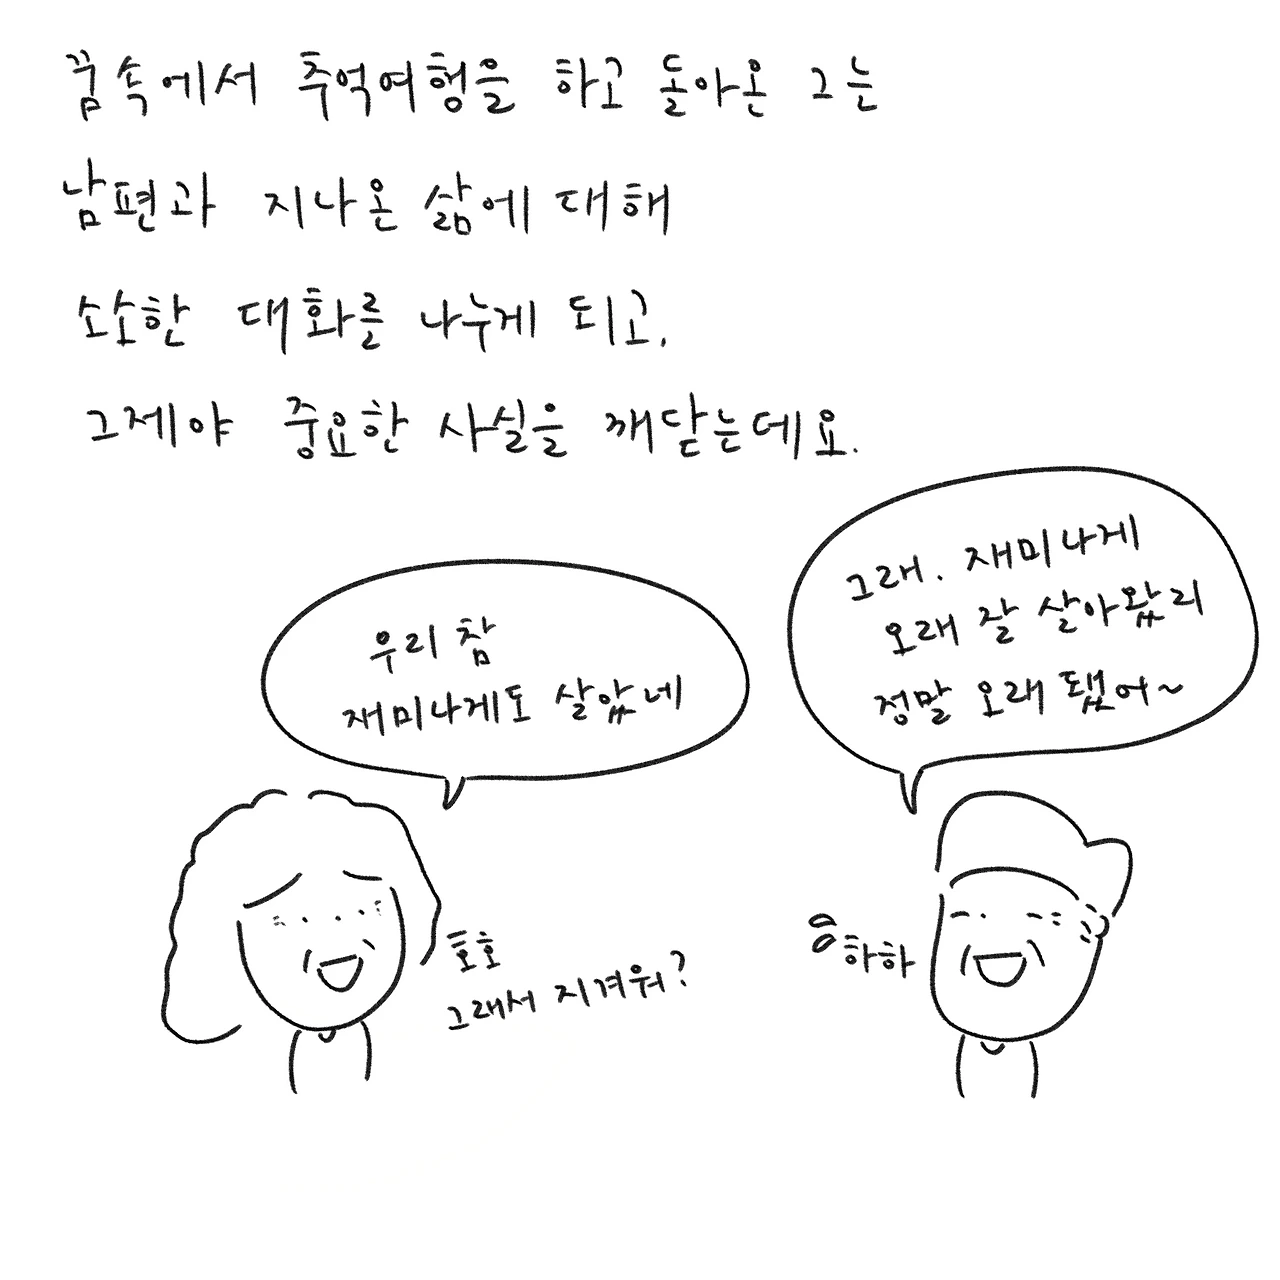 꿈속에서 추억여행을 하고 돌아온 그는
남편과 지나온 삶에 대해
소소한 대화를 나누게 되고,
그제야 중요한 사실을 깨닫는데요.
우리 참
재미나게도 살았네
그래. 재미나게
오래 잘 살아왔리
정말 오래 됐어~
호호
그래서 지겨워?
하하